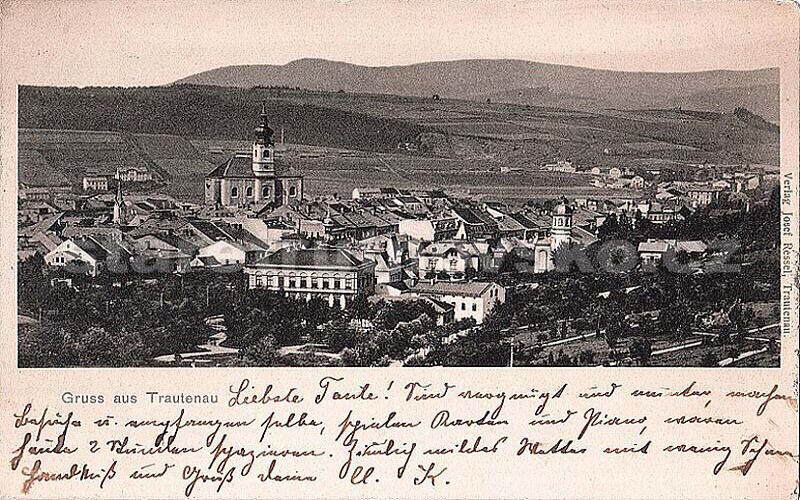 Gruss aus Trautenau Liebste Tante! Sind vergnügt und munter, machen
Besuche u. empfangen selbe, spielen Karten und Piano, waren
heute 2 Stunden spazieren. Ziemlich mildes Wetter mit wenig Schnee
Handkuß und Gruß deine M. K.
Verlag Josef Rössel, Trautenau.